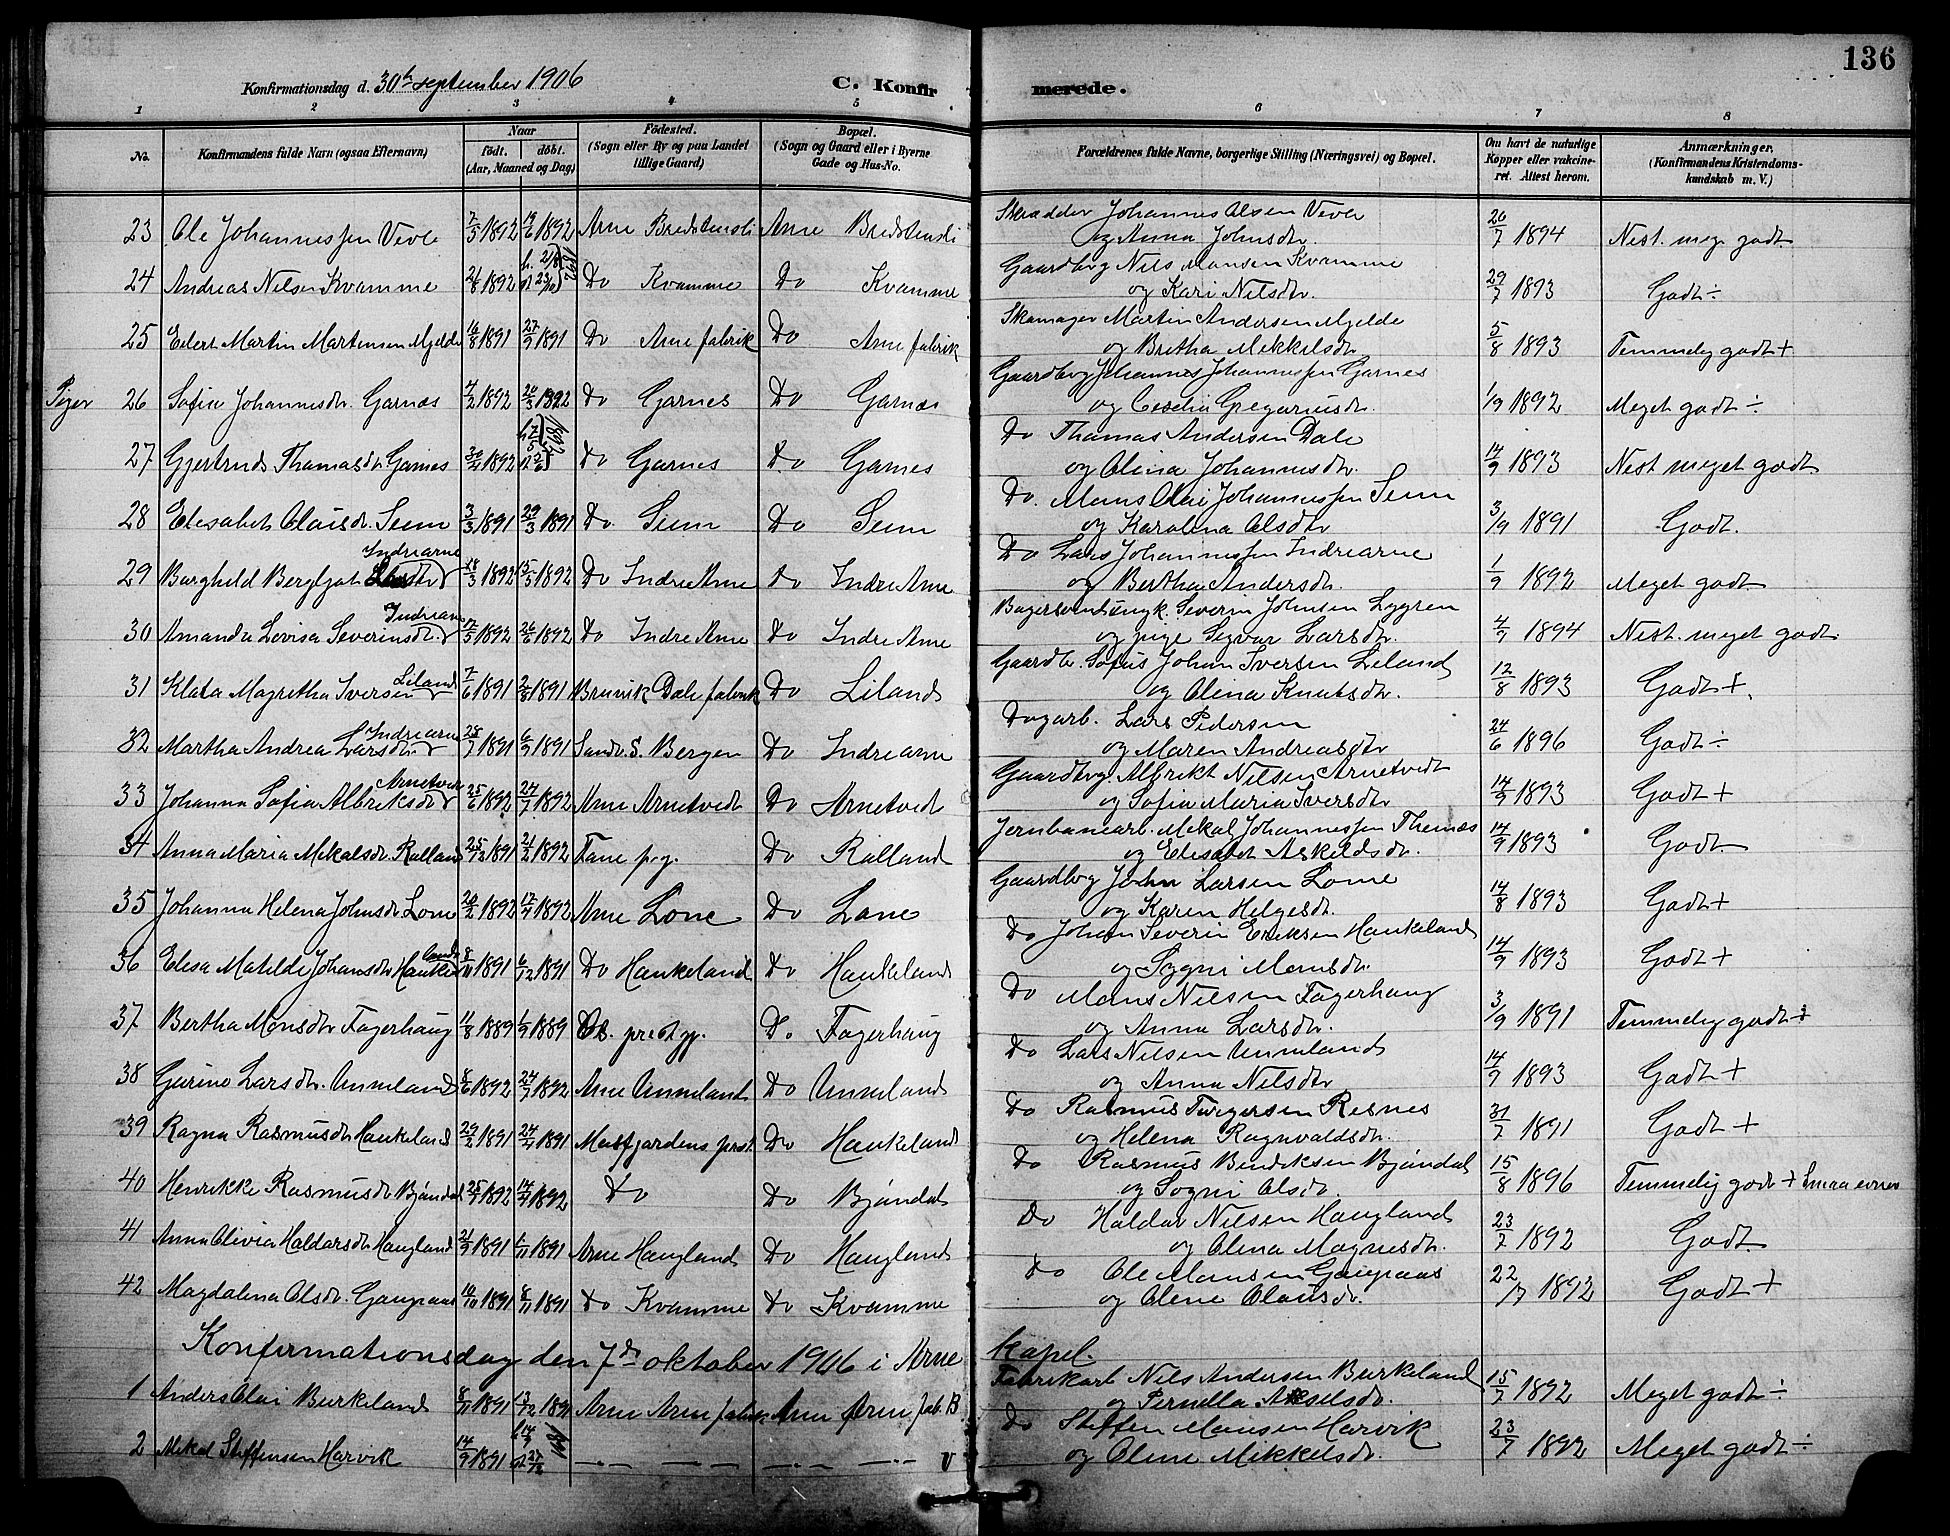 136
Konfirmationsdag d. 30te september 1906 C. Konfirmerede.
1 2 3 4 5 6 7 8
No. Konfirmandens fulde Navn (ogsaa Efternavn) Naar født. døbt. (Aar, Maaned og Dag) Fødested. (Sogn eller By og paa Landet tillige Gaard) Bopæl. (Sogn og Gaard eller i Byerne Gade og Hus-No. Forældrenes fulde Navne, borgerlige Stilling (Næringsvei) og Bopæl. Om havt de naturlige Kopper eller vaccineret. Attest herom. Anmærkninger. (Konfirmandens Kristendomskundskab m. V.)
23 Ole Johannessen Vevle 7/5 1892 19/6 1892 Arne Bredstensli Arne Bredstensli Skrædder Johannes Olsen Vevle 20/7 1894 Nest. meg. godt
og Anna Johnsdtr.
24 Andreas Nilsen Kvamme 21/8 1892 h. 21/8 st 23/10 1892 Do Kvamme Do Kvamme Gaardbrg Nils Monsen Kvamme 29/7 1893 Godt ÷
og Kari Nilsdtr.
25 Eilert Martin Martensen Mjelde 16/8 1891 27/9 1891 Do Arne fabrik Do Arne fabrik Skomager Martin Andersen Mjelde 5/8 1893 Temmelig godt +
og Bretha Mikkelsdtr
Piger 26 Sofia Johannesdtr. Garnæs 4/2 1892 20/3 1892 Do Garnes Do Garnæs Gaardbrg Johannes Johannessen Garnes 1/9 1892 Meget godt ÷
og Cecilia Gregoriusdtr.
27 Gjertrud Thomasdtr Garnes 30/4 1892 1892 Do Garnes Do Garnes Do Thomas Andersen Dale 14/9 1893 Nest meget godt
og Olina Johannesdtr.
28 Elisabet Olaisdtr. Seim 3/3 1891 29/3 1891 Do Seim Do Seim Do. Mons Olai Johannessen Seim 3/9 1891 Godt.
og Karolina Olsdtr
29 Borghild Bergljot Larsdtr Indrearne 28/3 1892 15/5 1892 Do Indre Arne Do Indre Arne Do Lars Johannessen Indrearne 1/9 1892 Meget godt
og Bertha Andersdtr.
30 Amanda Lovisa Severinsdtr. Indrearne 17/5 1892 26/6 1892 Do Indre Arne Do Indre Arne Bagersvend ungk. Severin Johnsen Lygren 4/9 1894 Nest. meget godt
og pige Sigvor Larsdtr.
31 Klara Magretha Iversen Liland 7/6 1891 2/8 1891 Bruvik Dale fabrik Do Liland Gaardbr. Sofus Johan Iversen Liland 12/8 1893 Godt +.
og Olina Knutsdtr.
32 Martha Andrea Larsdtr Indrearne 28/7 1891 6/9 1891 Sandv. S. Bergen Do Indrearne Dagarb. Lars Pedersen 24/6 1896 Godt ÷
og Maren Andreasdtr
33 Johanna Sofia Albriksdtr Arnetveit 25/6 1892 24/7 1892 Arne Arnetvedt Do Arnetvedt Gaardbrg. Albrikt Nilsen Arnetvedt 14/9 1893 Godt +
og Sofia Maria Iversdtr
34 Anna Maria Mikalsdtr. Ralland 25/12 1891 21/2 1892 Fane p.g. Do Ralland Jernbanearb. Mikal Johannessen Themæs 14/9 1893 Godt.
og Elisabet Askeldsdtr.
35 Johanna Helena Johnsdtr Lone 20/2 1892 17/4 1892 Arne Lone Do Lone Gaardbrg John Larsen Lone 14/8 1893 Godt +
og Karen Helgesdtr.
36 Elisa Matilde Johansdtr Haukeland 8/11 1891 6/12 1891 Do Haukeland Do Haukeland Do Johan Severin Eriksen Haukeland 14/9 1893 Godt +
og Sygni Monsdtr.
37 Bertha Monsdtr Fagerhaug 11/8 1889 1/9 1889 Os. prestgj. Do Fagerhaug Do Mons Nilsen Fagerhaug 3/9 1891 Temmelig godt ÷
og Anna Larsdtr.
38 Gurine Larsdtr. Unneland 8/6 1892 24/7 1892 Arne Unneland Do Unneland Do Lars Nilsen Unneland 14/9 1893 Godt +
og Anna Nilsdtr
39 Ragna Rasmusdtr Haukeland 29/2 1891 24/4 1891 Masfjordens prst. Do Haukeland Do Rasmus Torgersen Resnes 31/7 1891 Godt +
og Helena Ragnvaldsdtr.
40 Henrikke Rasmusdtr Bjøndal 25/4 1892 14/7 1892 Do Do Bjøndal Do Rasmus Bendiksen Bjøndal 15/8 1896 Temmelig godt + Smaa evner
og Sogni Olsdtr.
41 Anna Olivia Haldorsdtr Haugland 21/9 1891 1/11 1891 Arne Haugland Do Haugland Do Haldor Nilsen Haugland 23/7 1892 Godt.
og Olina Magnesdtr.
42 Magdalena Olsdtr. Gaupaas 10/10 1891 8/11 1891 Do Kvamme Do Kvamme Do Ole Monsen Gaupaas 22/7 1892 Godt +
og Olene Olausdtr.
Konfirmationsdag den 7de oktober 1906 i Arne kapel.
1 Anders Olai Burkeland 8/11 1891 13/12 1891 Arne Arne fabrik Arne Arne fab. B Fabrikarb Nils Andersen Burkeland 15/7 1892 Meget godt ÷
og Pernella Akselsdtr.
2 Mikal Steffensen Harvik 14/9 1891 1891 — — — — — v Do Steffen Monsen Harvik 23/7 1892 Meget godt ÷
og Olene Mikkelsdtr.